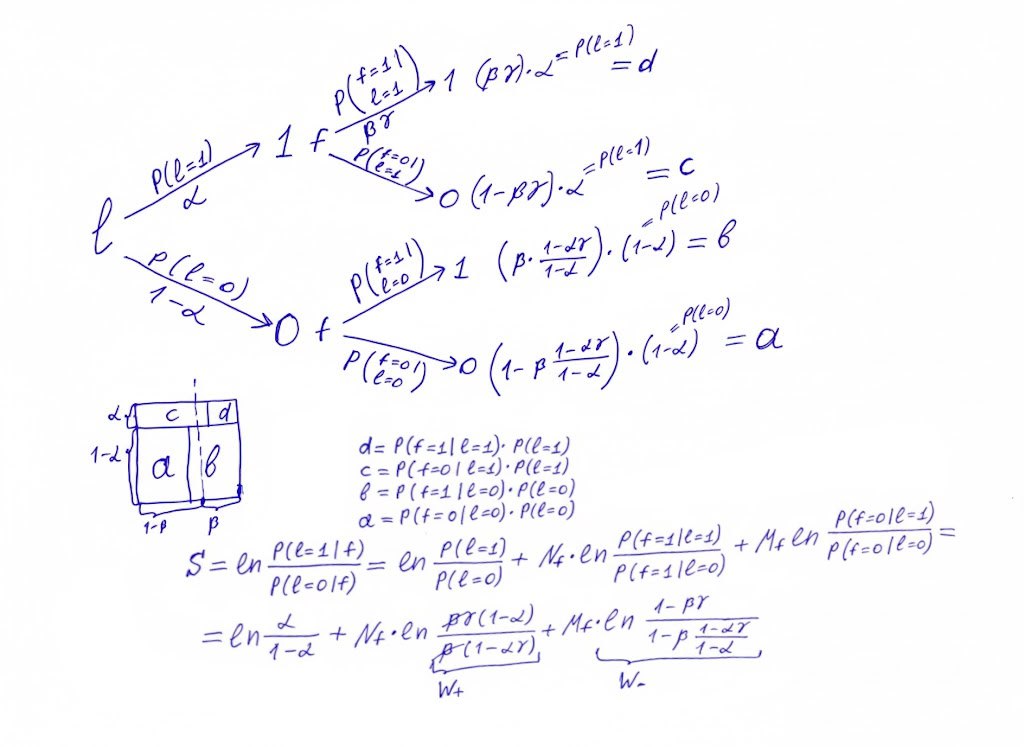 P(f=1|l=1) 1 (βγ)·α =P(l=1) = d
βγ
P(l=1) 1 f
α
P(f=0|l=1) 0 (1-βγ)·α =P(l=1) = c
l
P(f=1|l=0) 1 (β·(1-αγ)/(1-α))·(1-α) =P(l=0) = b
P(l=0) 0 f
1-α
P(f=0|l=0) 0 (1-β (1-αγ)/(1-α))·(1-α) =P(l=0) = a
α c d
1-α a b
1-β β
d = P(f=1|l=1)·P(l=1)
c = P(f=0|l=1)·P(l=1)
b = P(f=1|l=0)·P(l=0)
a = P(f=0|l=0)·P(l=0)
S = ln P(l=1|f)/P(l=0|f) = ln P(l=1)/P(l=0) + Nf·ln P(f=1|l=1)/P(f=1|l=0) + Mf ln P(f=0|l=1)/P(f=0|l=0) =
= ln α/(1-α) + Nf·ln βγ(1-α)/β(1-αγ) + Mf·ln (1-βγ)/(1-β (1-αγ)/(1-α))
W+ W-